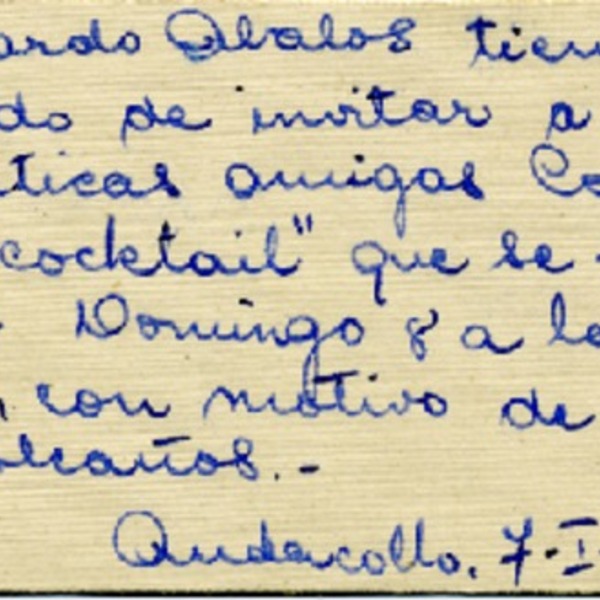 ardo Abalos tien
do de invitar a
ticas amigas Co
cocktail" que se
Domingo 8 a la
con motivo de
pleaños.-
Andacollo. 7-I